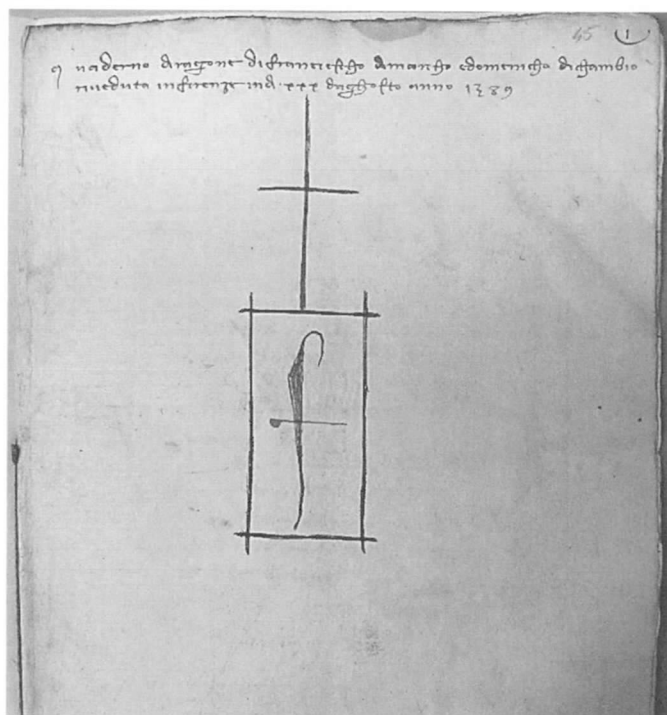 45 1
quaderno diragone di franciescho dimarcho edomenicho dichambio
riveduta infirenze indi xxx daghosto anno 1389